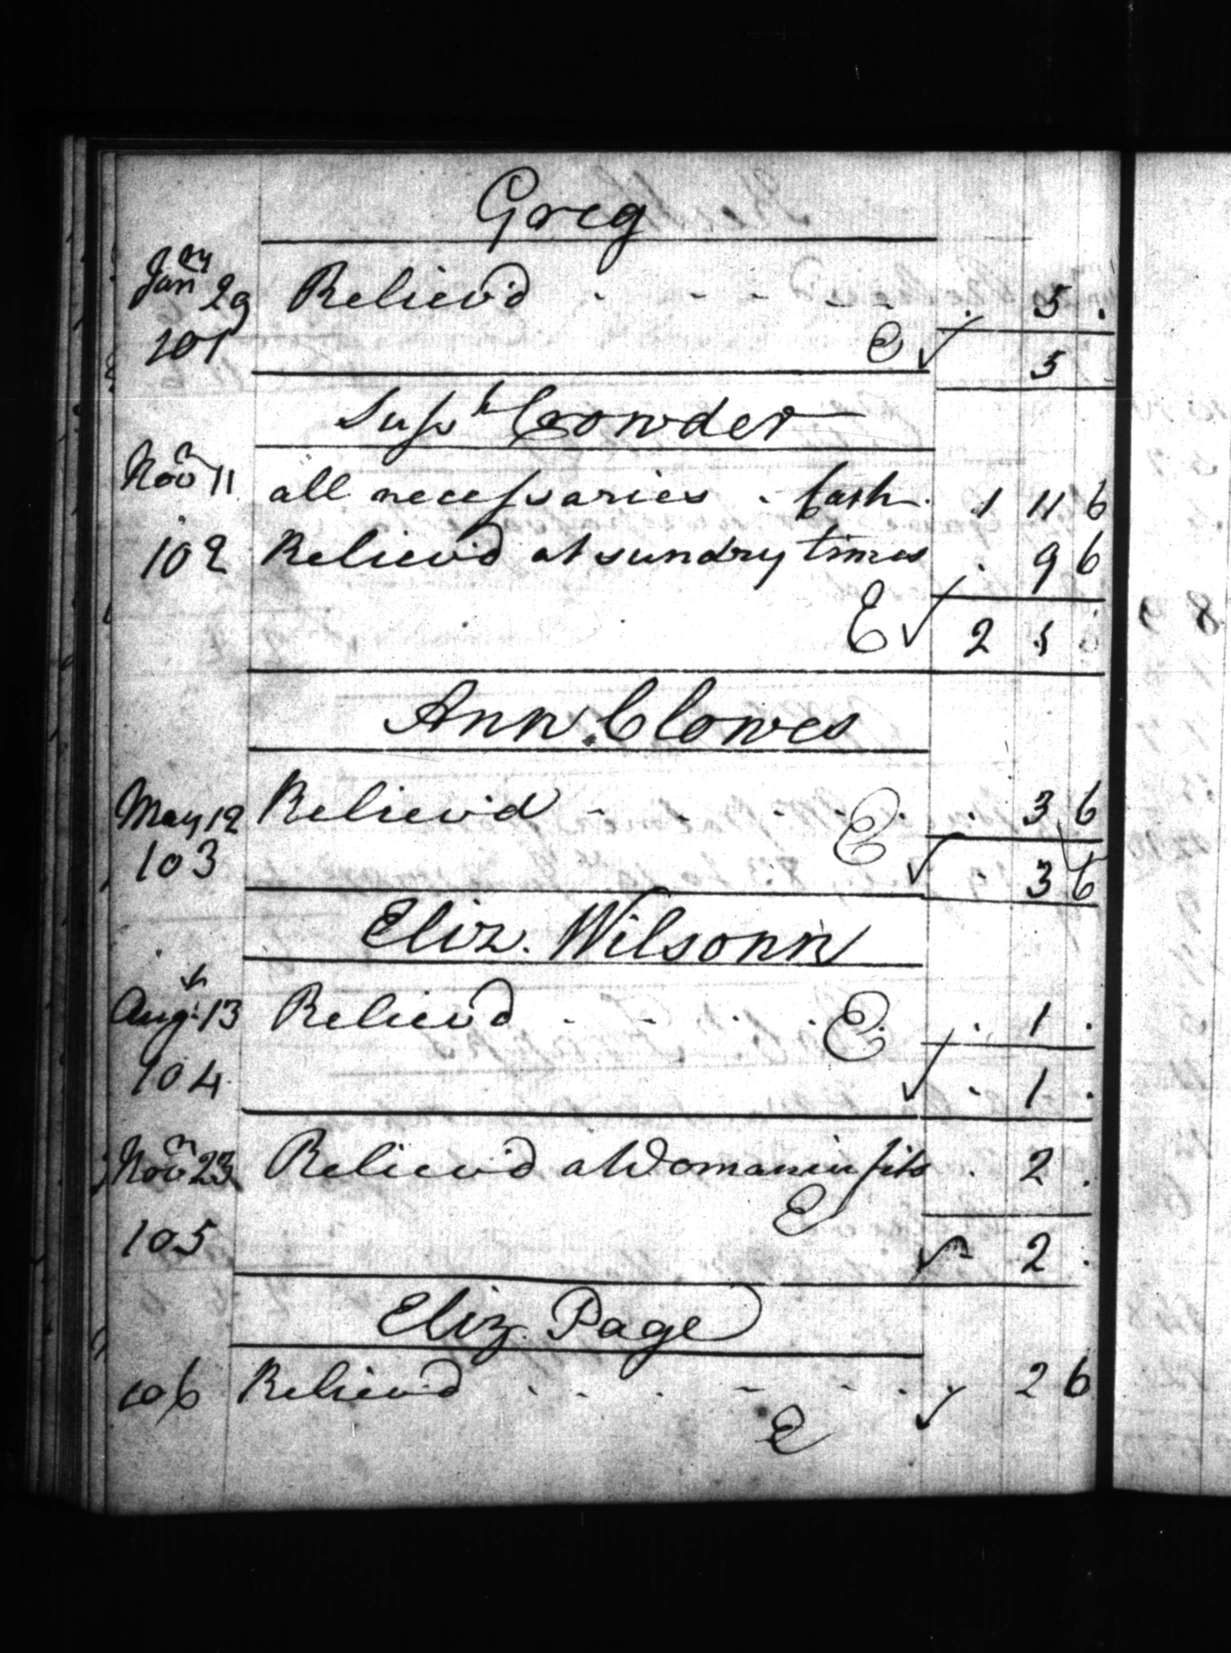 Greg
Jany 29 Reliev'd - - - - - . 5 .
101 E ✓ 5
Crowder
Novr 11 all necessaries - Cash . 1 11 6
102 Reliev'd at sundry times . 9 6
E ✓ 2 1
Ann. Clowes
May 12 Reliev'd - - - - . 3 6
103 E ✓ 3 6
Eliz. Wilsonn
Augt 13 Reliev'd - - - . E . 1 .
104 ✓ . 1 .
Novr 23 Reliev'd a Woman in fits . 2 .
E
105 ✓ 2 .
Eliz. Page
106 Reliev'd - - - - - - ✓ 2 6
E